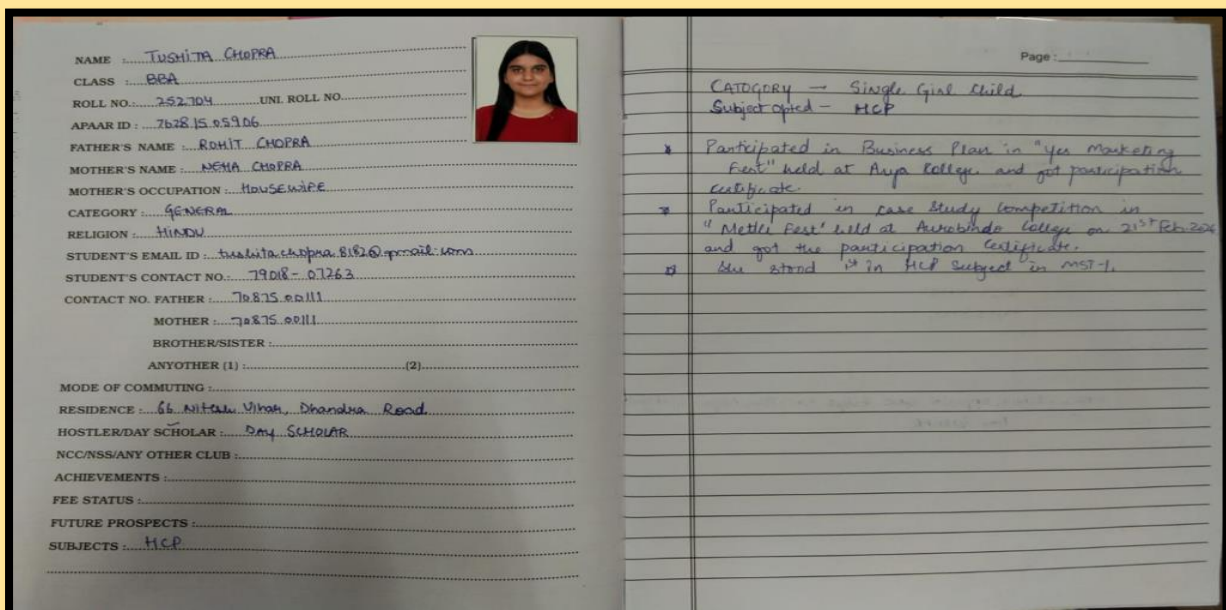 NAME : TUSHITA CHOPRA
CLASS : BBA
ROLL NO.: 252704 UNI. ROLL NO.
APAAR ID : 76281505906
FATHER'S NAME : ROHIT CHOPRA
MOTHER'S NAME : NEHA CHOPRA
MOTHER'S OCCUPATION : HOUSEWIFE
CATEGORY : GENERAL
RELIGION : HINDU
STUDENT'S EMAIL ID : tushita.chopra.8182@gmail.com
STUDENT'S CONTACT NO.: 79018-07263
CONTACT NO. FATHER : 70875 00111
MOTHER : 70875 00111
BROTHER/SISTER :
ANYOTHER (1) : (2)
MODE OF COMMUTING :
RESIDENCE : 66 Nitesh Vihar, Dhandra Road
HOSTLER/DAY SCHOLAR : DAY SCHOLAR
NCC/NSS/ANY OTHER CLUB :
ACHIEVEMENTS :
FEE STATUS :
FUTURE PROSPECTS :
SUBJECTS : HCP
Page :
CATOGORY — Single Girl Child
Subject opted - HCP
Participated in Business Plan in "Yes Marketing
Fest" held at Arya College and got participation
certificate.
Participated in case study competition in
"Mettle Fest" held at Aurobindo College on 21st Feb
and got the participation certificate.
She stood 1st in HCP subject in MST-1.